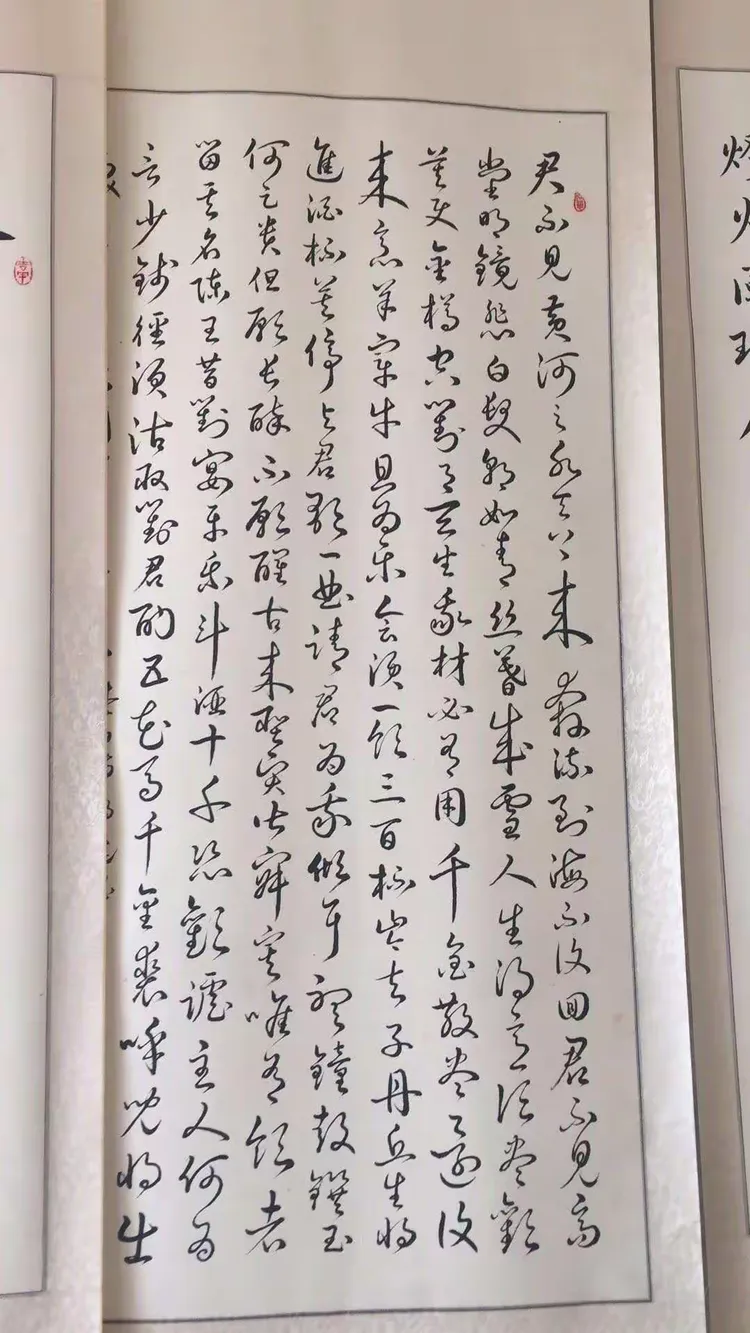 君不見黃河之水天上來奔流到海不復回君不見高
堂明鏡悲白髮朝如青絲暮成雪人生得意須盡歡
莫使金樽空對月天生我材必有用千金散盡還復
來烹羊宰牛且為樂會須一飲三百杯岑夫子丹丘生將
進酒杯莫停與君歌一曲請君為我傾耳聽鐘鼓饌玉
何足貴但願長醉不願醒古來聖賢皆寂寞唯有飲者
留其名陳王昔對宴平樂斗酒十千恣歡謔主人何為
言少錢徑須沽取對君酌五花馬千金裘呼兒將出